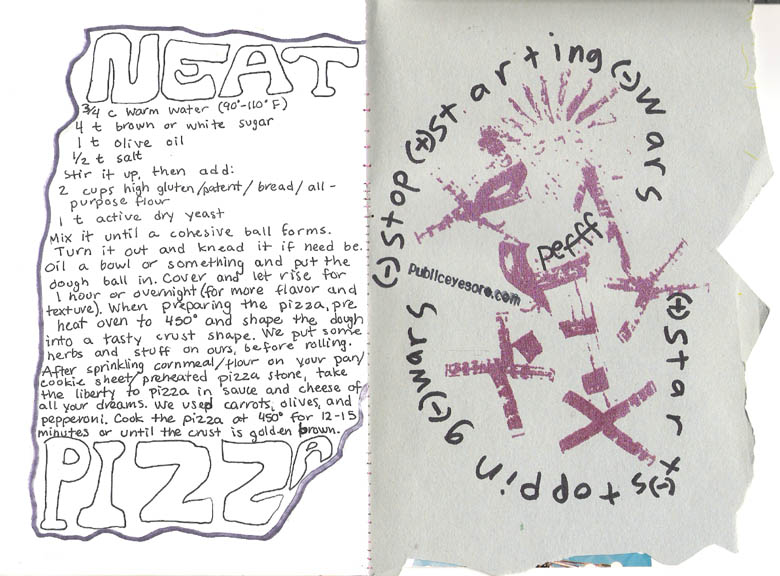 NEAT
3/4 c warm water (90°-110° F)
4 t brown or white sugar
1 t olive oil
1/2 t salt
Stir it up, then add:
2 cups high gluten/patent/bread/all-
purpose flour
1 t active dry yeast
Mix it until a cohesive ball forms.
Turn it out and knead it if need be.
Oil a bowl or something and put the
dough ball in. Cover and let rise for
1 hour or overnight (for more flavor and
texture). When preparing the pizza, pre
heat oven to 450° and shape the dough
into a tasty crust shape. We put some
herbs and stuff on ours, before rolling.
After sprinkling cornmeal/flour on your pan/
cookie sheet/preheated pizza stone, take
the liberty to pizza in sauce and cheese of
all your dreams. We used carrots, olives, and
pepperoni. Cook the pizza at 450° for 12-15
minutes or until the crust is golden brown.
PIZZA
(-) stop (+) starting (-) wars
(+) start (-) stopping (-) wars
pefff
Publiceyesore.com